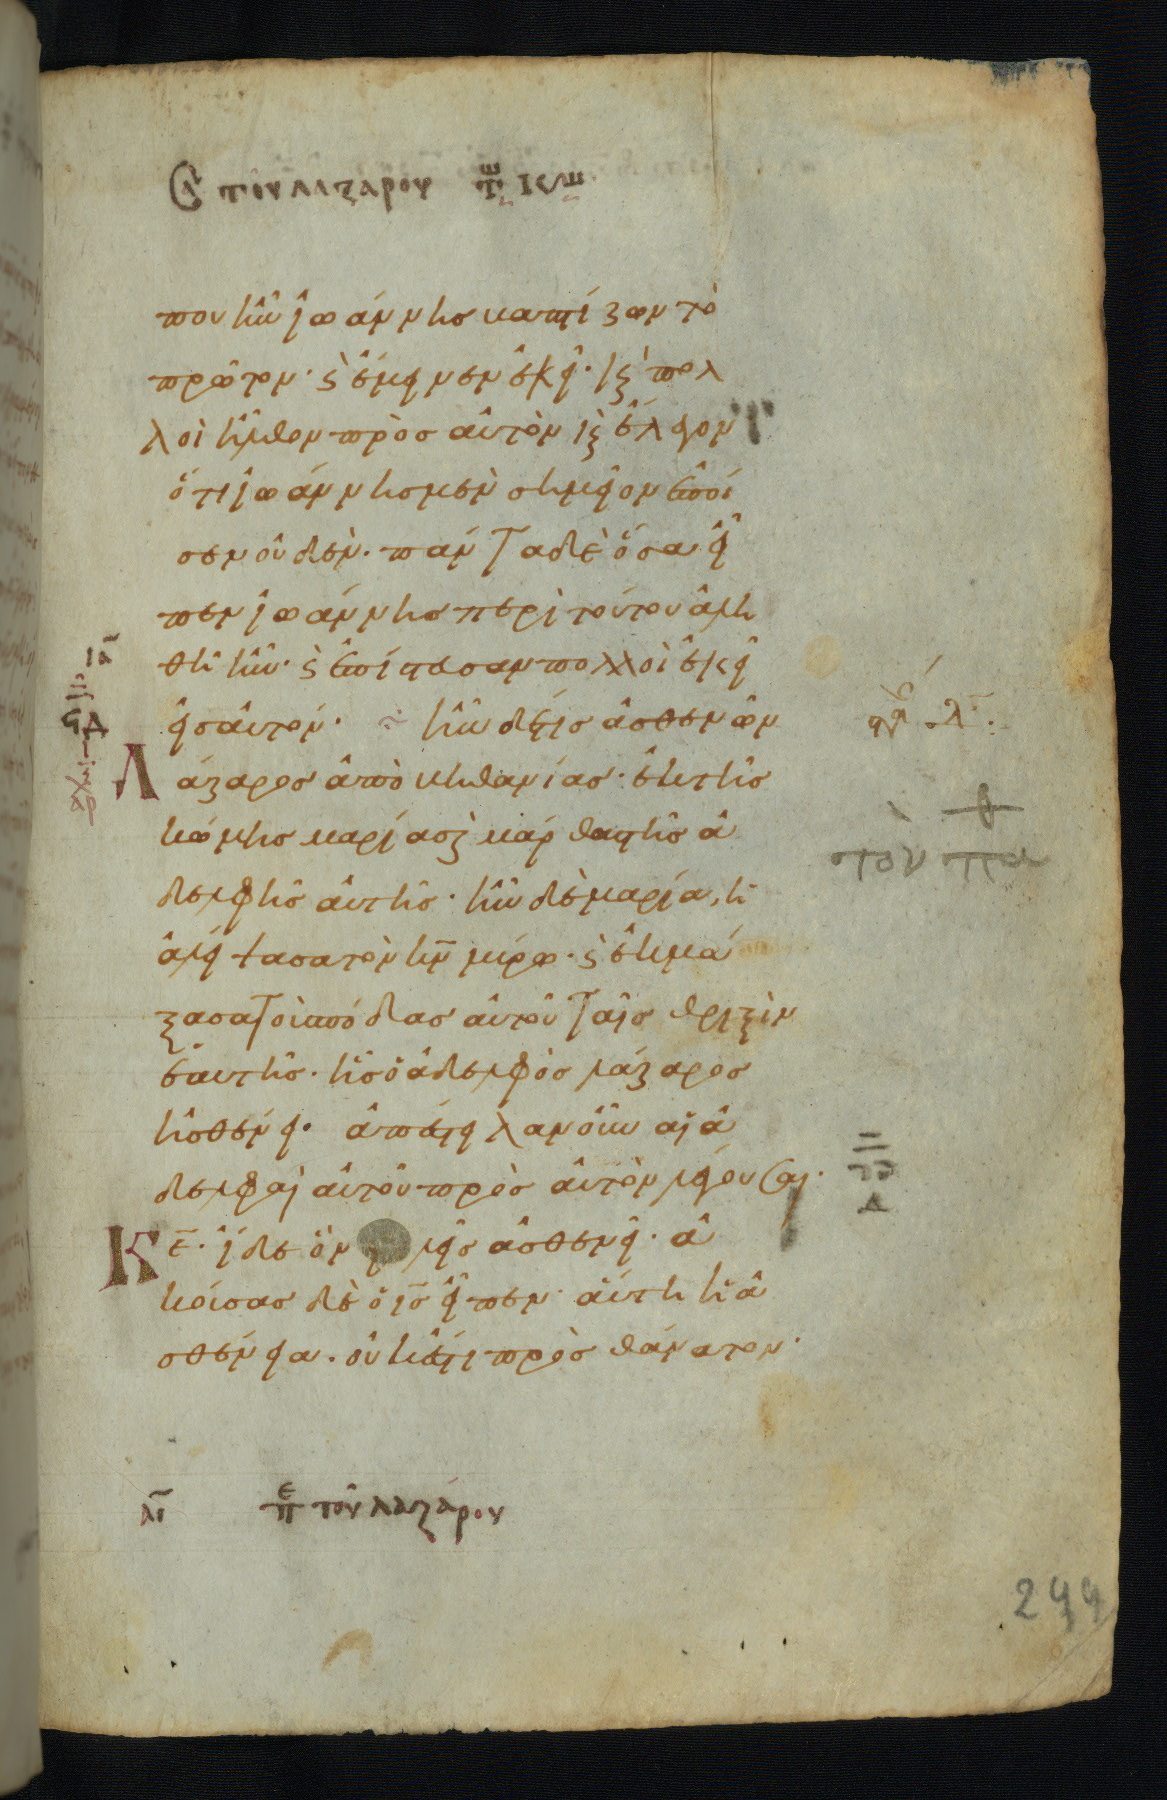 τοῦ λαζάρου
που ἦν ἰωάννης βαπτίζων τὸ
πρῶτον· καὶ ἔμεινεν ἐκεῖ· καὶ πολ
λοὶ ἦλθον πρὸς αὐτὸν καὶ ἔλεγον
ὅτι ἰωάννης μὲν σημεῖον ἐποί
σεν οὐδὲν· πάντα δὲ ὅσα εἶ
πεν ἰωάννης περὶ τούτου ἀλη
θῆ ἦν· καὶ ἐπίστευσαν πολλοὶ ἐκεῖ
εἰς αὐτόν· ἦν δέ τις ἀσθενῶν
λάζαρος ἀπὸ βηθανίας· ἐκ τῆς
κώμης μαρίας καὶ μάρθας τῆς ἀ
δελφῆς αὐτῆς· ἦν δὲ μαρία, ἡ
ἀλείψασα τὸν κν μύρω· καὶ ἐκμά
ξασα τοὺς πόδας αὐτοῦ ταῖς θριξὶν
ἑαυτῆς· ἧς ὁ ἀδελφὸς λάζαρος
ἠσθένει· ἀπέστειλαν οὖν αἱ ἀ
δελφαὶ αὐτοῦ πρὸς αὐτὸν λέγουσαι·
κε· ἴδε ὃν φιλεῖς ἀσθενεῖ· ἀ
κούσας δὲ ὁ ις εἶπεν· αὕτη ἡ ἀ
σθένεια· οὐκ ἔστι πρὸς θάνατον·
λγ περ τοῦ λαζάρου
244